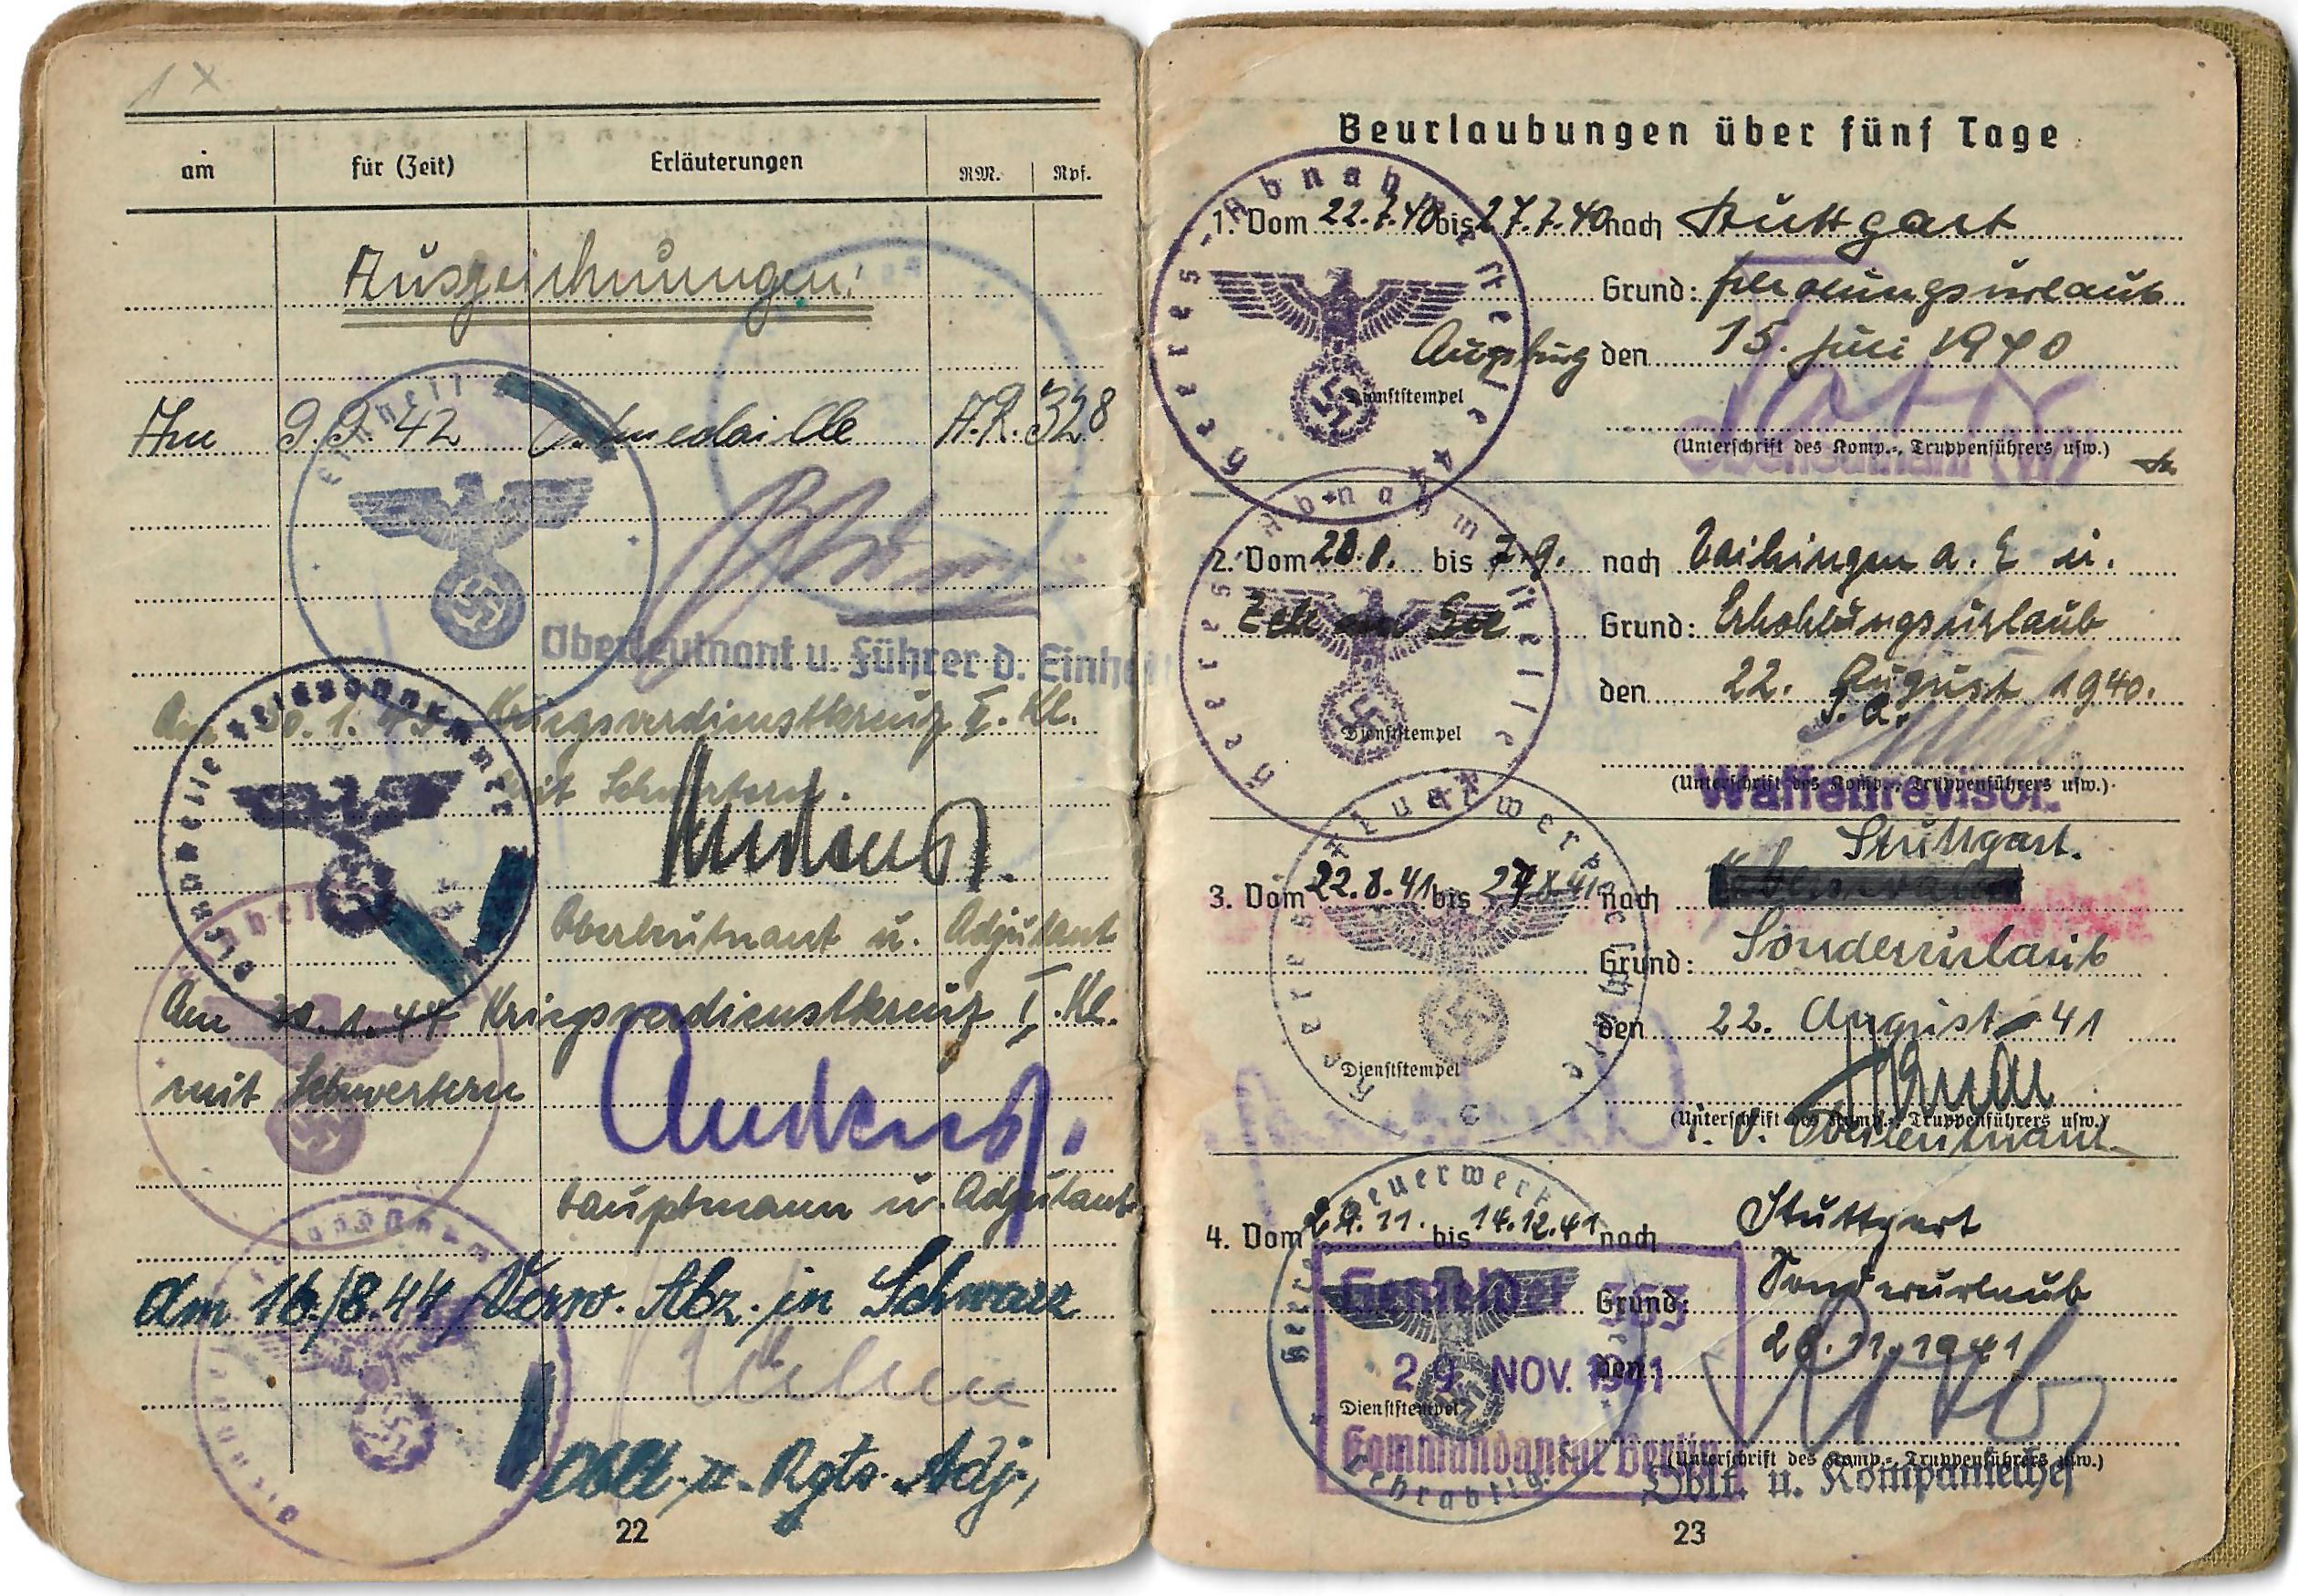 1 x
am für (Zeit) Erläuterungen RM. Rpf.
Auszeichnungen:
Am 9.9.42 medaille A.R. 328
Oberleutnant u. Führer d. Einheit
Am 30.1.43 Kriegsverdienstkreuz II. Kl.
mit Schwertern.
Oberleutnant u. Adjutant
Am 30.1.44 Kriegsverdienstkreuz I. Kl.
mit Schwertern
Hauptmann u. Adjutant
Am 16./8.44 Verw. Abz. in Schwarz
Oblt. u. Rgts. Adj,
22
Beurlaubungen über fünf Tage
Heeres-Abnahmestelle
1. Vom 22.7.40 bis 27.7.40 nach Stuttgart
Grund: Erholungsurlaub
Augsburg den 15. Juli 1940
Dienststempel
(Unterschrift des Komp.-, Truppenführers usw.)
Oberleutnant (W)
Heeres-Abnahmestelle
2. Vom 28.8. bis 7.9. nach Vaihingen a. E u.
Zell am See Grund: Erhohlungsurlaub
den 22. August 1940.
Dienststempel
J. A.
(Unterschrift des Komp.-, Truppenführers usw.)
Waffenrevisor.
Stuttgart.
3. Vom 22.8.41 bis 27.8.41 nach
Grund: Sonderurlaub
den 22. August 41
Dienststempel
(Unterschrift des Komp.-, Truppenführers usw.)
J. V. Oberleutnant
4. Vom 29.11. bis 14.12.41 nach Stuttgart
Grund: Sonderurlaub
den 28.11.1941
29. NOV. 1941
Dienststempel
Kommandantur Berlin
(Unterschrift des Komp.-, Truppenführers usw.)
Oblt. u. Kompaniechef
23